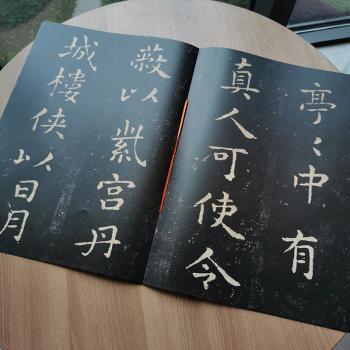 亭〻中有
真人可使令
蔽以紫宫丹
城樓侠以日月